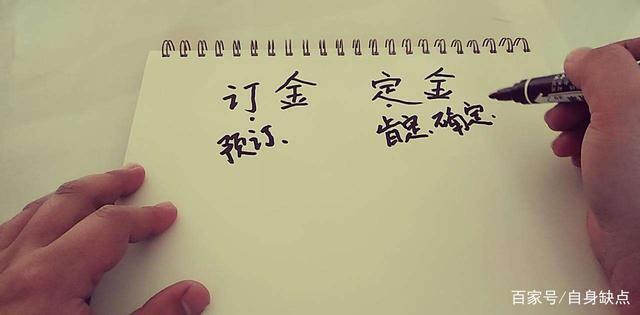 订金 定金
预订、 肯定、确定.
百家号/自身缺点